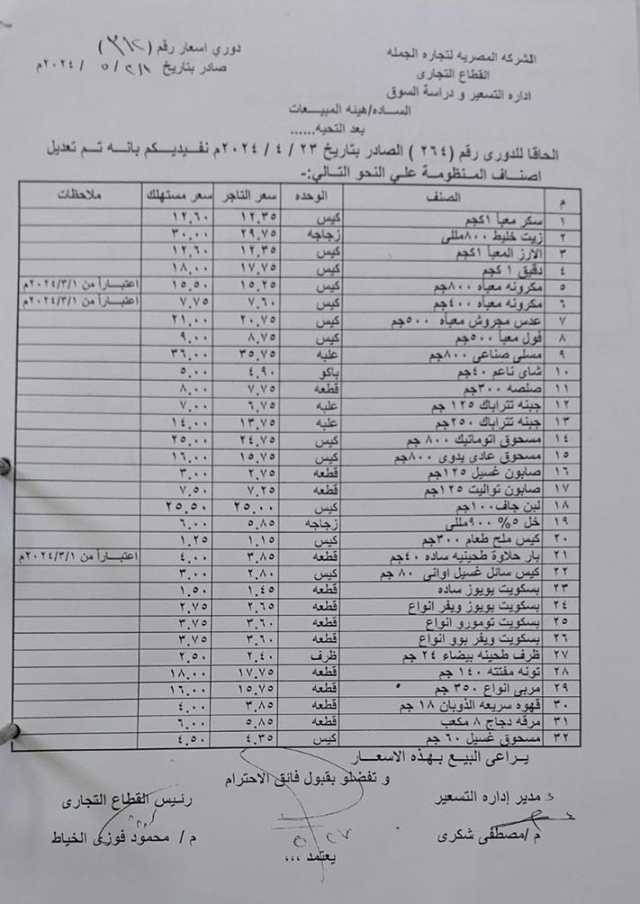 الشركه المصريه لتجاره الجمله
القطاع التجارى
اداره التسعير و دراسة السوق
دوري اسعار رقم (٣١٢)
صادر بتاريخ / ٥ / ٢٠٢٤م
الساده/هيئه المبيعات
بعد التحيه......
الحاقا للدورى رقم (٢٦٤) الصادر بتاريخ ٢٣ / ٤ / ٢٠٢٤م نفيديكم بانه تم تعديل
اصناف المنظومة علي النحو التالي:-
م الصنف الوحده سعر التاجر سعر مستهلك ملاحظات
١ سكر معبأ ١كجم كيس ١٢,٣٥ ١٢,٦٠
٢ زيت خليط ٨٠٠مللى زجاجه ٢٩,٧٥ ٣٠,٠٠
٣ الارز المعبأ ١كجم كيس ١٢,٣٥ ١٢,٦٠
٤ دقيق ١ كجم كيس ١٧,٧٥ ١٨,٠٠
٥ مكرونه معبأه ٨٠٠جم كيس ١٥,٢٥ ١٥,٥٠ اعتباراً من ٢٠٢٤/٣/١م
٦ مكرونه معبأه ٤٠٠جم كيس ٧,٦٠ ٧,٧٥ اعتباراً من ٢٠٢٤/٣/١م
٧ عدس مجروش معبأه ٥٠٠جم كيس ٢٠,٧٥ ٢١,٠٠
٨ فول معبأ ٥٠٠جم كيس ٨,٧٥ ٩,٠٠
٩ مسلى صناعى ٨٠٠جم علبه ٣٥,٧٥ ٣٦,٠٠
١٠ شاى ناعم ٤٠جم باكو ٤,٩٠ ٥,٠٠
١١ صلصه ٣٠٠جم قطعه ٧,٧٥ ٨,٠٠
١٢ جبنه تتراباك ١٢٥ جم علبه ٦,٧٥ ٧,٠٠
١٣ جبنه تتراباك ٢٥٠جم علبه ١٣,٧٥ ١٤,٠٠
١٤ مسحوق اتوماتيك ٨٠٠ جم كيس ٢٤,٧٥ ٢٥,٠٠
١٥ مسحوق عادى يدوى ٨٠٠جم كيس ١٥,٧٥ ١٦,٠٠
١٦ صابون غسيل ١٢٥جم قطعه ٢,٧٥ ٣,٠٠
١٧ صابون تواليت ١٢٥جم قطعه ٧,٢٥ ٧,٥٠
١٨ لبن جاف١٠٠جم كيس ٢٥,٠٠ ٢٥,٥٠
١٩ خل ٥% ٩٠٠مللى زجاجه ٥,٨٥ ٦,٠٠
٢٠ كيس ملح طعام ٣٠٠جم كيس ١,١٥ ١,٢٥
٢١ بار حلاوة طحينيه ساده ٤٠جم قطعه ٣,٨٥ ٤,٠٠ اعتباراً من ٢٠٢٤/٣/١م
٢٢ كيس سائل غسيل اوانى ٨٠ جم كيس ٢,٨٠ ٣,٠٠
٢٣ بسكويت يويوز ساده قطعه ١,٤٥ ١,٥٠
٢٤ بسكويت يويوز ويفر انواع قطعه ٢,٦٥ ٢,٧٥
٢٥ بسكويت تومورو انواع قطعه ٣,٦٠ ٣,٧٥
٢٦ بسكويت ويفر بوو انواع قطعه ٣,٦٠ ٣,٧٥
٢٧ ظرف طحينه بيضاء ٢٤ جم ظرف ٢,٤٠ ٢,٥٠
٢٨ تونه مفتته ١٤٠ جم قطعه ١٧,٧٥ ١٨,٠٠
٢٩ مربى انواع ٣٥٠ جم قطعه ١٥,٧٥ ١٦,٠٠
٣٠ قهوه سريعه الذوبان ١٨ جم قطعه ٣,٨٥ ٤,٠٠
٣١ مرقه دجاج ٨ مكعب قطعه ٥,٨٥ ٦,٠٠
٣٢ مسحوق غسيل ٦٠ جم كيس ٤,٣٥ ٤,٥٠
يراعى البيع بهذه الاسعار
و تفضلو بقبول فائق الاحترام
مدير إداره التسعير
م/مصطفى شكرى
رئيس القطاع التجارى
م / محمود فوزى الخياط
يعتمد ,,,